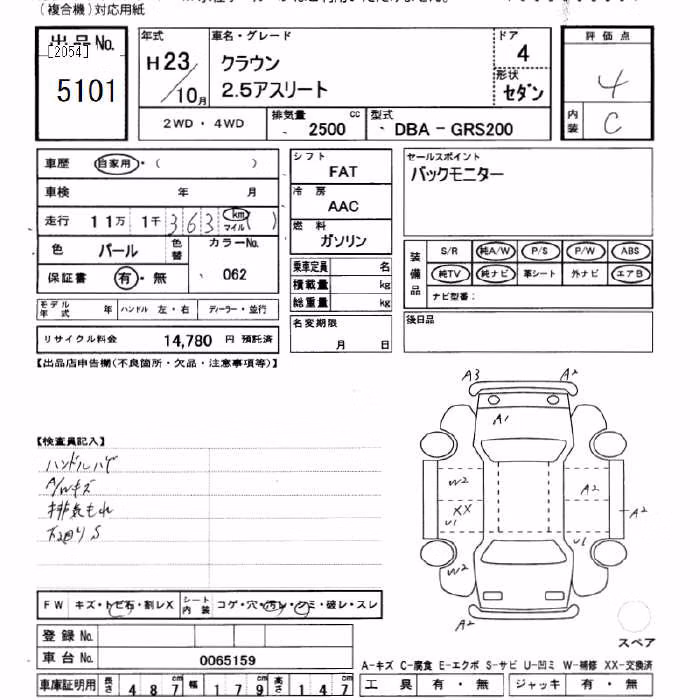 (複合機)対応用紙
出品No.
[2054]
5101
年式
H23/10月
車名・グレード
クラウン
2.5アスリート
ドア
4
形状
セダン
評価点
4
内装
C
2WD・4WD
排気量
2500 cc
型式
DBA - GRS200
車歴 自家用・( )
車検 年 月
走行 11万 1千 363 km マイル ( )
色 パール 色替
カラーNo.
062
保証書 有・無
モデル年式 年 ハンドル 左・右 ディーラー・並行
リサイクル料金 14,780 円 預託済
シフト
FAT
冷房
AAC
燃料
ガソリン
乗車定員 名
積載量 kg
総重量 kg
名変期限
月 日
セールスポイント
バックモニター
装備品
S/R 純A/W P/S P/W ABS
純TV 純ナビ 革シート 外ナビ エアB
ナビ型番:
後日品
【出品店申告欄(不良箇所・欠品・注意事項等)】
【検査員記入】
ハンドルハゲ
A/Wキズ
排気もれ
下廻りS
A3
A2
A1
W2
A2
XX
U1
A2
U1
W2
A2
FW キズ・トビ石・割レX シート内装 コゲ・穴・汚レ・シミ・破レ・スレ
登録No.
車台No. 0065159
車庫証明用 長さ 487 cm 幅 179 cm 高さ 147 cm
スペア
A-キズ C-腐食 E-エクボ S-サビ U-凹ミ W-補修 XX-交換済
工具 有・無 ジャッキ 有・無